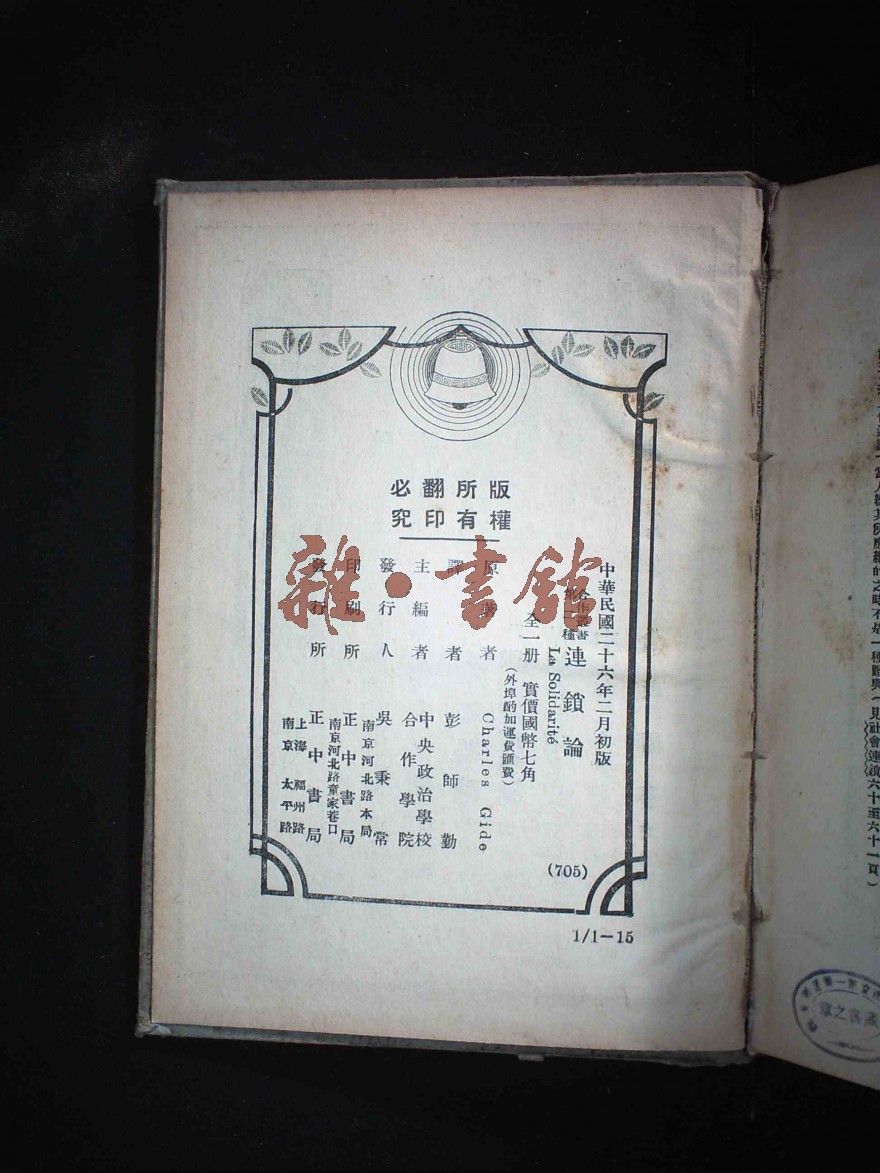 版權所有
翻印必究
中華民國二十六年二月初版
合作叢書
連鎖論
La Solidarité
全一册 實價國幣七角
(外埠酌加運費匯費)
原著者 Charles Gide
譯者 彭師勤
主編者 中央政治學校
合作學院
發行人 吳秉常
南京河北路本局
印刷所 正中書局
南京河北路童家巷口
發行所 正中書局
上海福州路
南京太平路
(705)
1/1—15
雜·書館
之時不是一種體與(見社會連鎖六十至六十一頁)
藏書之章